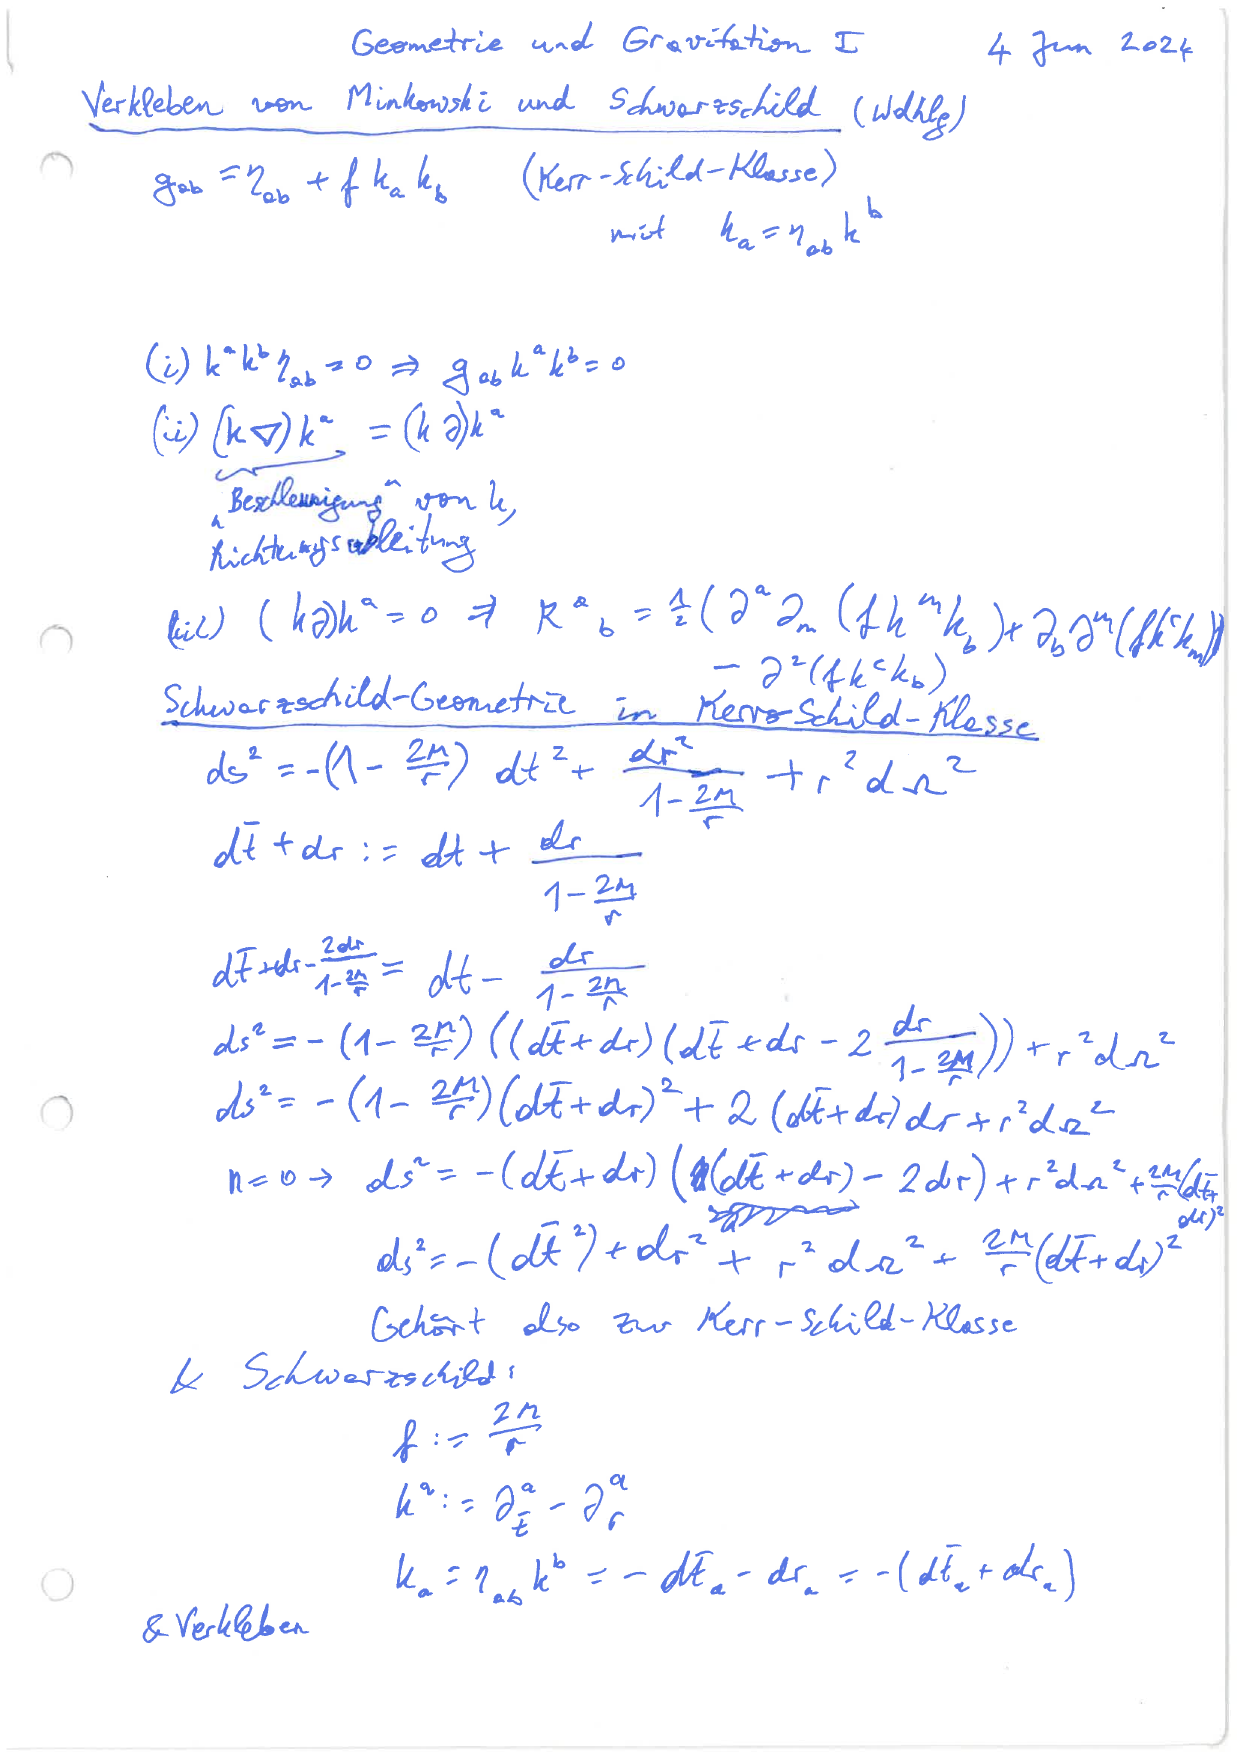 Geometrie und Gravitation I 4 Jun 2024
Verkleben von Minkowski und Schwarzschild (Wdhlg)
g_ab = η_ab + f k_a k_b (Kerr-Schild-Klasse)
mit k_a = η_ab k^b
(i) k^a k^b η_ab = 0 ⇒ g_ab k^a k^b = 0
(ii) (k∇)k^a = (k∂)k^a
"Beschleunigung" von k,
Richtungsableitung
(iii) (k∂)k^a = 0 ⇒ R^a_b = 1/2 (∂^a ∂_m (f k^m k_b) + ∂_b ∂^m (f k^c k_m))
- ∂^2 (f k^c k_b)
Schwarzschild-Geometrie in Kerr-Schild-Klasse
ds^2 = -(1 - 2M/r) dt^2 + dr^2/(1 - 2M/r) + r^2 dΩ^2
dt̄ + dr := dt + dr/(1 - 2M/r)
dt̄ + dr - 2dr/(1 - 2M/r) = dt - dr/(1 - 2M/r)
ds^2 = -(1 - 2M/r) ((dt̄ + dr) (dt̄ + dr - 2 dr/(1 - 2M/r))) + r^2 dΩ^2
ds^2 = -(1 - 2M/r) (dt̄ + dr)^2 + 2 (dt̄ + dr) dr + r^2 dΩ^2
M = 0 → ds^2 = -(dt̄ + dr) ((dt̄ + dr) - 2dr) + r^2 dΩ^2 + 2M/r (dt̄ + dr)^2
ds^2 = -(dt̄^2) + dr^2 + r^2 dΩ^2 + 2M/r (dt̄ + dr)^2
Gehört also zur Kerr-Schild-Klasse
& Schwarzschild:
f := 2M/r
k^a := ∂_t̄^a - ∂_r^a
k_a = η_ab k^b = - dt̄_a - dr_a = -(dt̄_a + dr_a)
& Verkleben